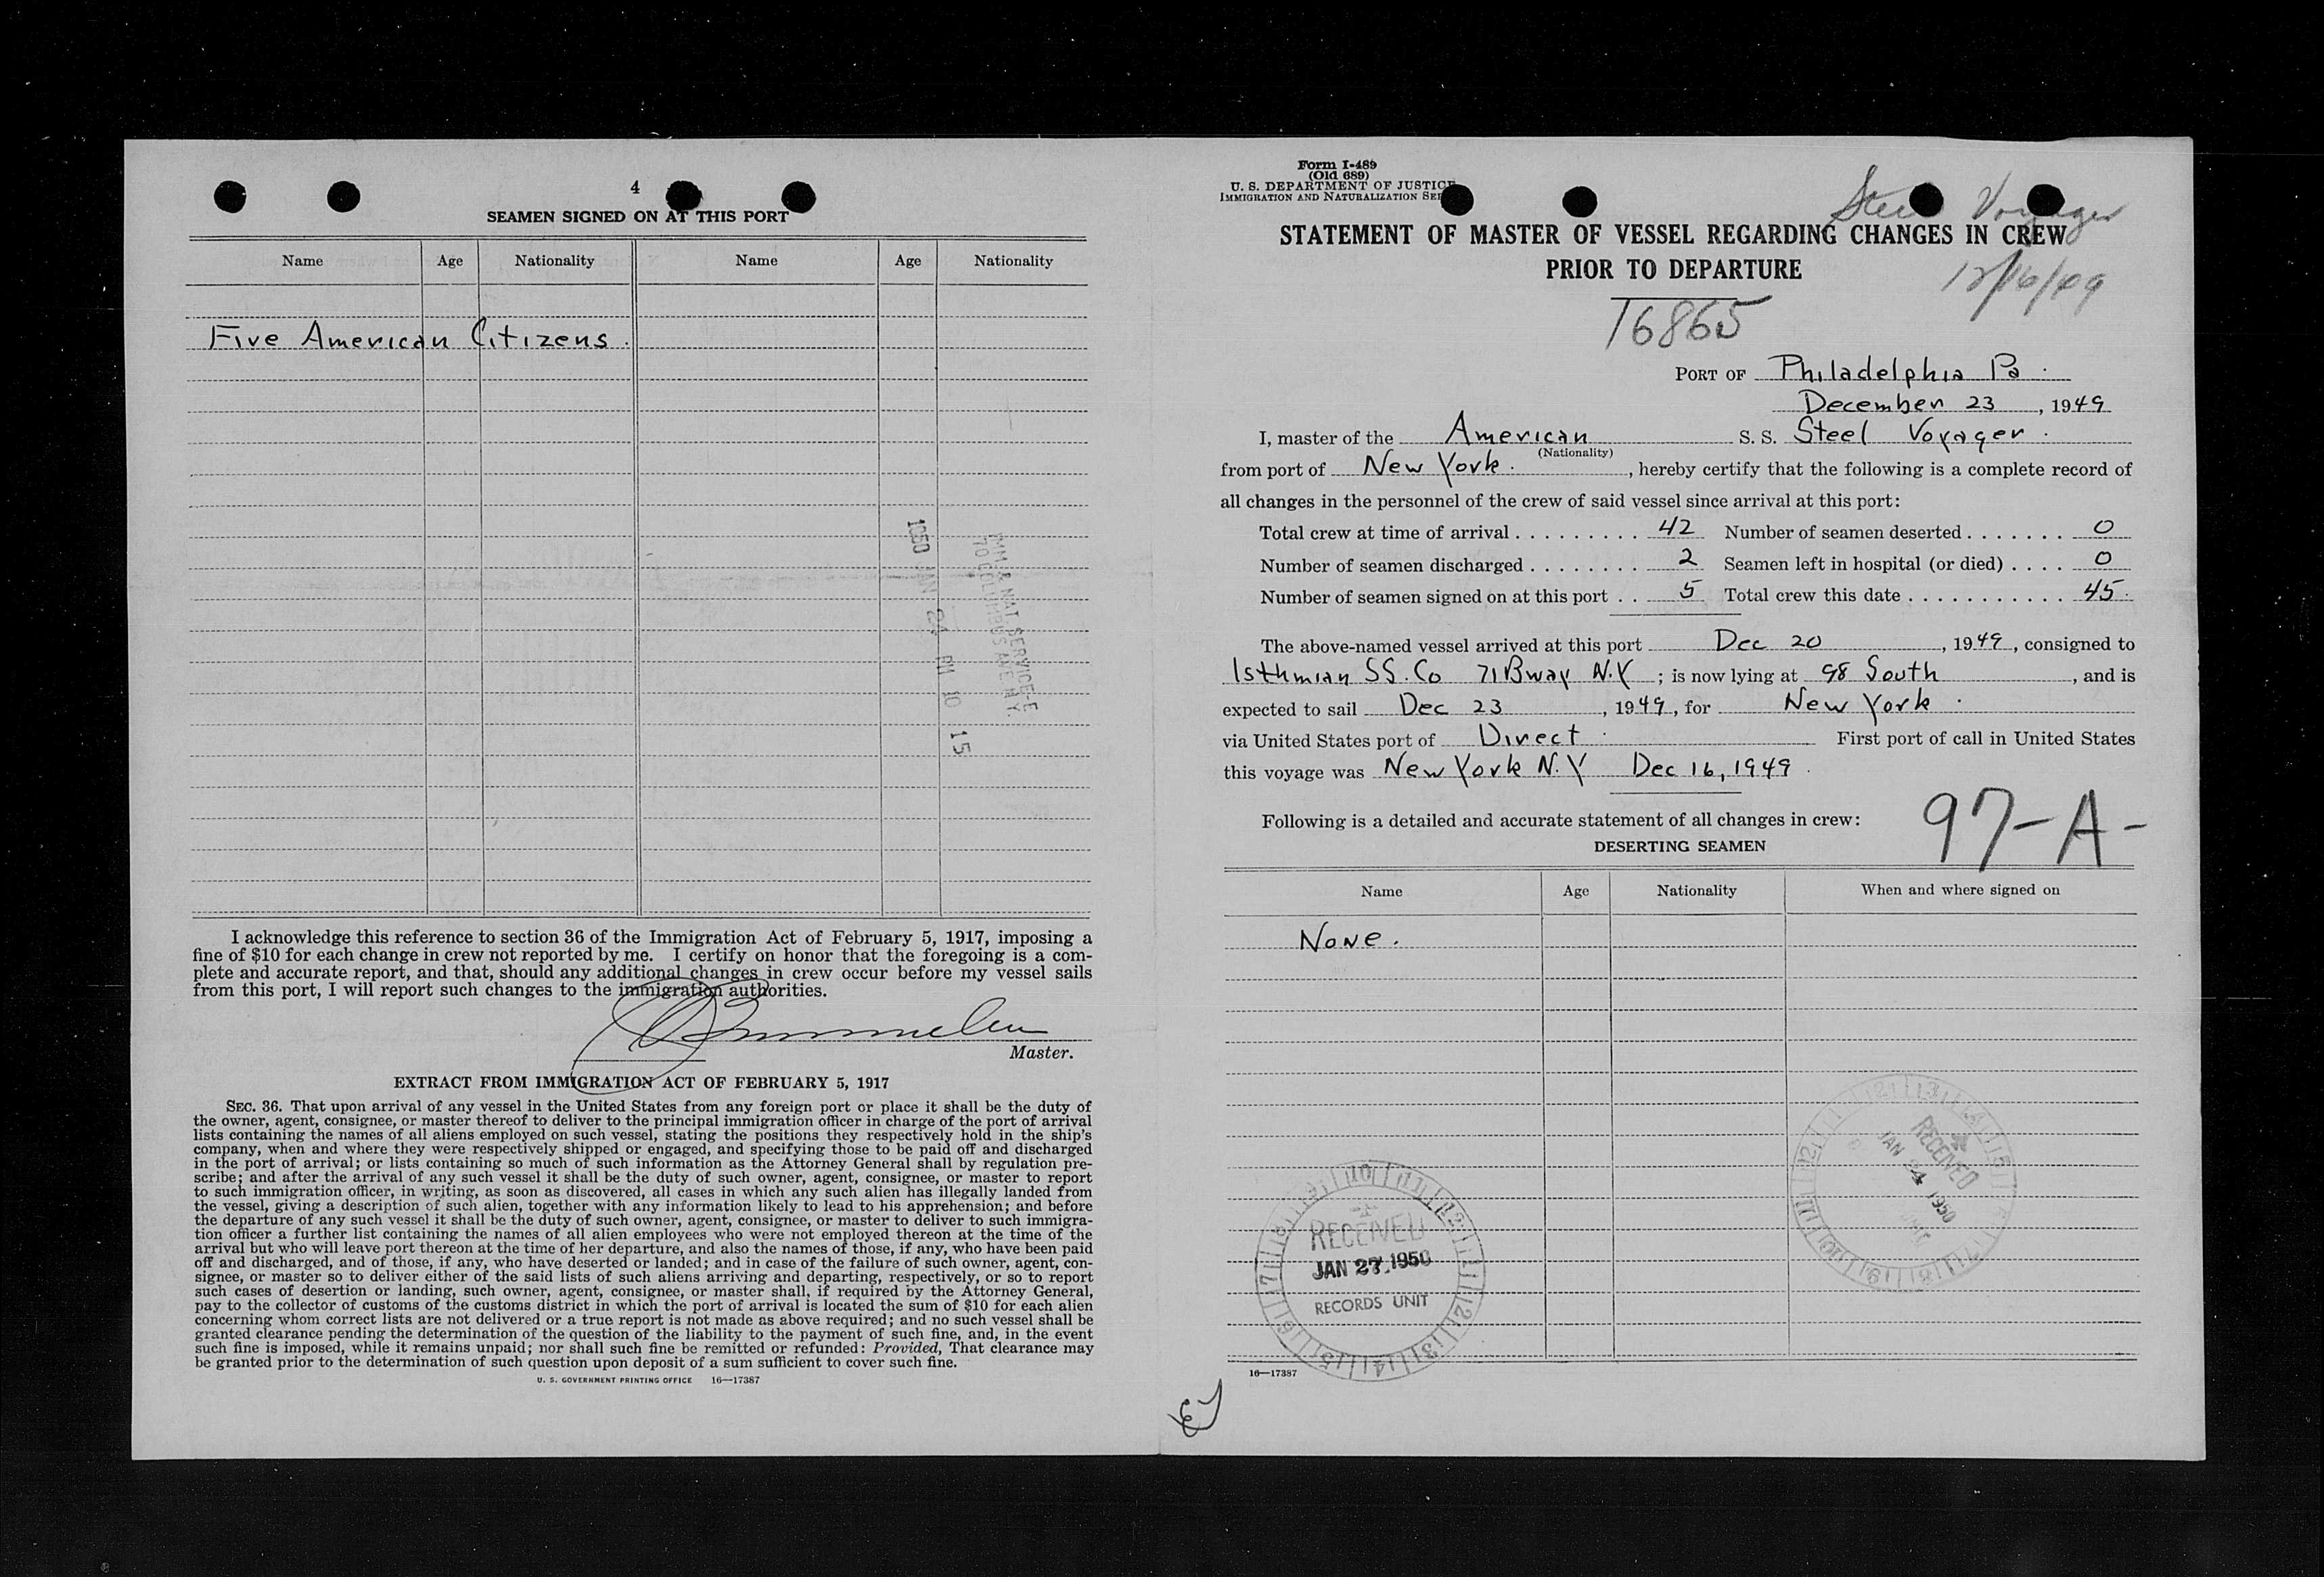 4
SEAMEN SIGNED ON AT THIS PORT
Name Age Nationality Name Age Nationality
Five American Citizens.
1950 JAN 24 PM 10 15
IMM. & NAT. SERVICE-E
70 COLUMBUS AVE N.Y.
I acknowledge this reference to section 36 of the Immigration Act of February 5, 1917, imposing a
fine of $10 for each change in crew not reported by me. I certify on honor that the foregoing is a com-
plete and accurate report, and that, should any additional changes in crew occur before my vessel sails
from this port, I will report such changes to the immigration authorities.
Master.
EXTRACT FROM IMMIGRATION ACT OF FEBRUARY 5, 1917
SEC. 36. That upon arrival of any vessel in the United States from any foreign port or place it shall be the duty of
the owner, agent, consignee, or master thereof to deliver to the principal immigration officer in charge of the port of arrival
lists containing the names of all aliens employed on such vessel, stating the positions they respectively hold in the ship's
company, when and where they were respectively shipped or engaged, and specifying those to be paid off and discharged
in the port of arrival; or lists containing so much of such information as the Attorney General shall by regulation pre-
scribe; and after the arrival of any such vessel it shall be the duty of such owner, agent, consignee, or master to report
to such immigration officer, in writing, as soon as discovered, all cases in which any such alien has illegally landed from
the vessel, giving a description of such alien, together with any information likely to lead to his apprehension; and before
the departure of any such vessel it shall be the duty of such owner, agent, consignee, or master to deliver to such immigra-
tion officer a further list containing the names of all alien employees who were not employed thereon at the time of the
arrival but who will leave port thereon at the time of her departure, and also the names of those, if any, who have been paid
off and discharged, and of those, if any, who have deserted or landed; and in case of the failure of such owner, agent, con-
signee, or master so to deliver either of the said lists of such aliens arriving and departing, respectively, or so to report
such cases of desertion or landing, such owner, agent, consignee, or master shall, if required by the Attorney General,
pay to the collector of customs of the customs district in which the port of arrival is located the sum of $10 for each alien
concerning whom correct lists are not delivered or a true report is not made as above required; and no such vessel shall be
granted clearance pending the determination of the question of the liability to the payment of such fine, and, in the event
such fine is imposed, while it remains unpaid; nor shall such fine be remitted or refunded: Provided, That clearance may
be granted prior to the determination of such question upon deposit of a sum sufficient to cover such fine.
U. S. GOVERNMENT PRINTING OFFICE 16—17387
Form I-489
(Old 689)
U. S. DEPARTMENT OF JUSTICE
IMMIGRATION AND NATURALIZATION SER
Steel Voyager
STATEMENT OF MASTER OF VESSEL REGARDING CHANGES IN CREW
PRIOR TO DEPARTURE
12/16/49
T6865
PORT OF Philadelphia Pa.
December 23, 1949
I, master of the American S. S. Steel Voyager.
(Nationality)
from port of New York., hereby certify that the following is a complete record of
all changes in the personnel of the crew of said vessel since arrival at this port:
Total crew at time of arrival 42 Number of seamen deserted 0
Number of seamen discharged 2 Seamen left in hospital (or died) 0
Number of seamen signed on at this port 5 Total crew this date 45
The above-named vessel arrived at this port Dec 20, 1949, consigned to
Isthmian SS. Co 71 Bway N.Y; is now lying at 98 South, and is
expected to sail Dec 23, 1949, for New York.
via United States port of Direct. First port of call in United States
this voyage was New York N.Y Dec 16, 1949.
Following is a detailed and accurate statement of all changes in crew:
97-A-
DESERTING SEAMEN
Name Age Nationality When and where signed on
None.
RECEIVED
JAN 24 1950
RECEIVED
JAN 27 1950
RECORDS UNIT
16—17387